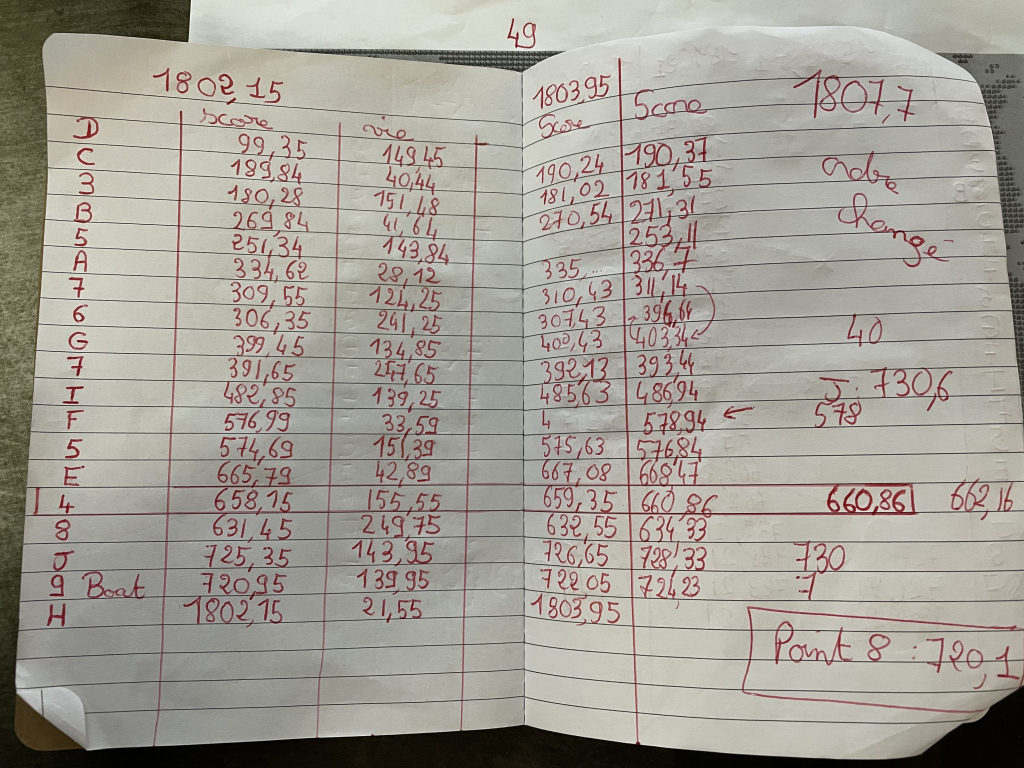 49
1802,15
Score vie
D 99,35 149,45
C 189,84 40,44
3 180,28 151,48
B 269,84 41,64
5 251,34 143,84
A 334,62 28,12
7 309,55 124,25
6 306,35 241,25
G 399,45 134,85
7 391,65 247,65
I 482,85 139,25
F 576,99 33,59
5 574,69 151,39
E 665,79 42,89
4 658,15 155,55
8 631,45 249,75
J 725,35 143,95
9 Boat 720,95 139,95
H 1802,15 21,55
1803,95 1807,7
Score Score
190,24 190,37
181,02 181,55
270,54 271,31
253,11
335,... 336,7
310,43 311,14
307,43 396,64
400,43 403,34
392,13 393,44
485,63 486,94
4 578,94 ←
575,63 576,84
667,08 668,47
659,35 660,86 660,86 662,16
632,55 634,33
726,65 728,33 730
722,05 724,23
1803,95
changé
40
J : 730,6
578
Point 8 : 720,1